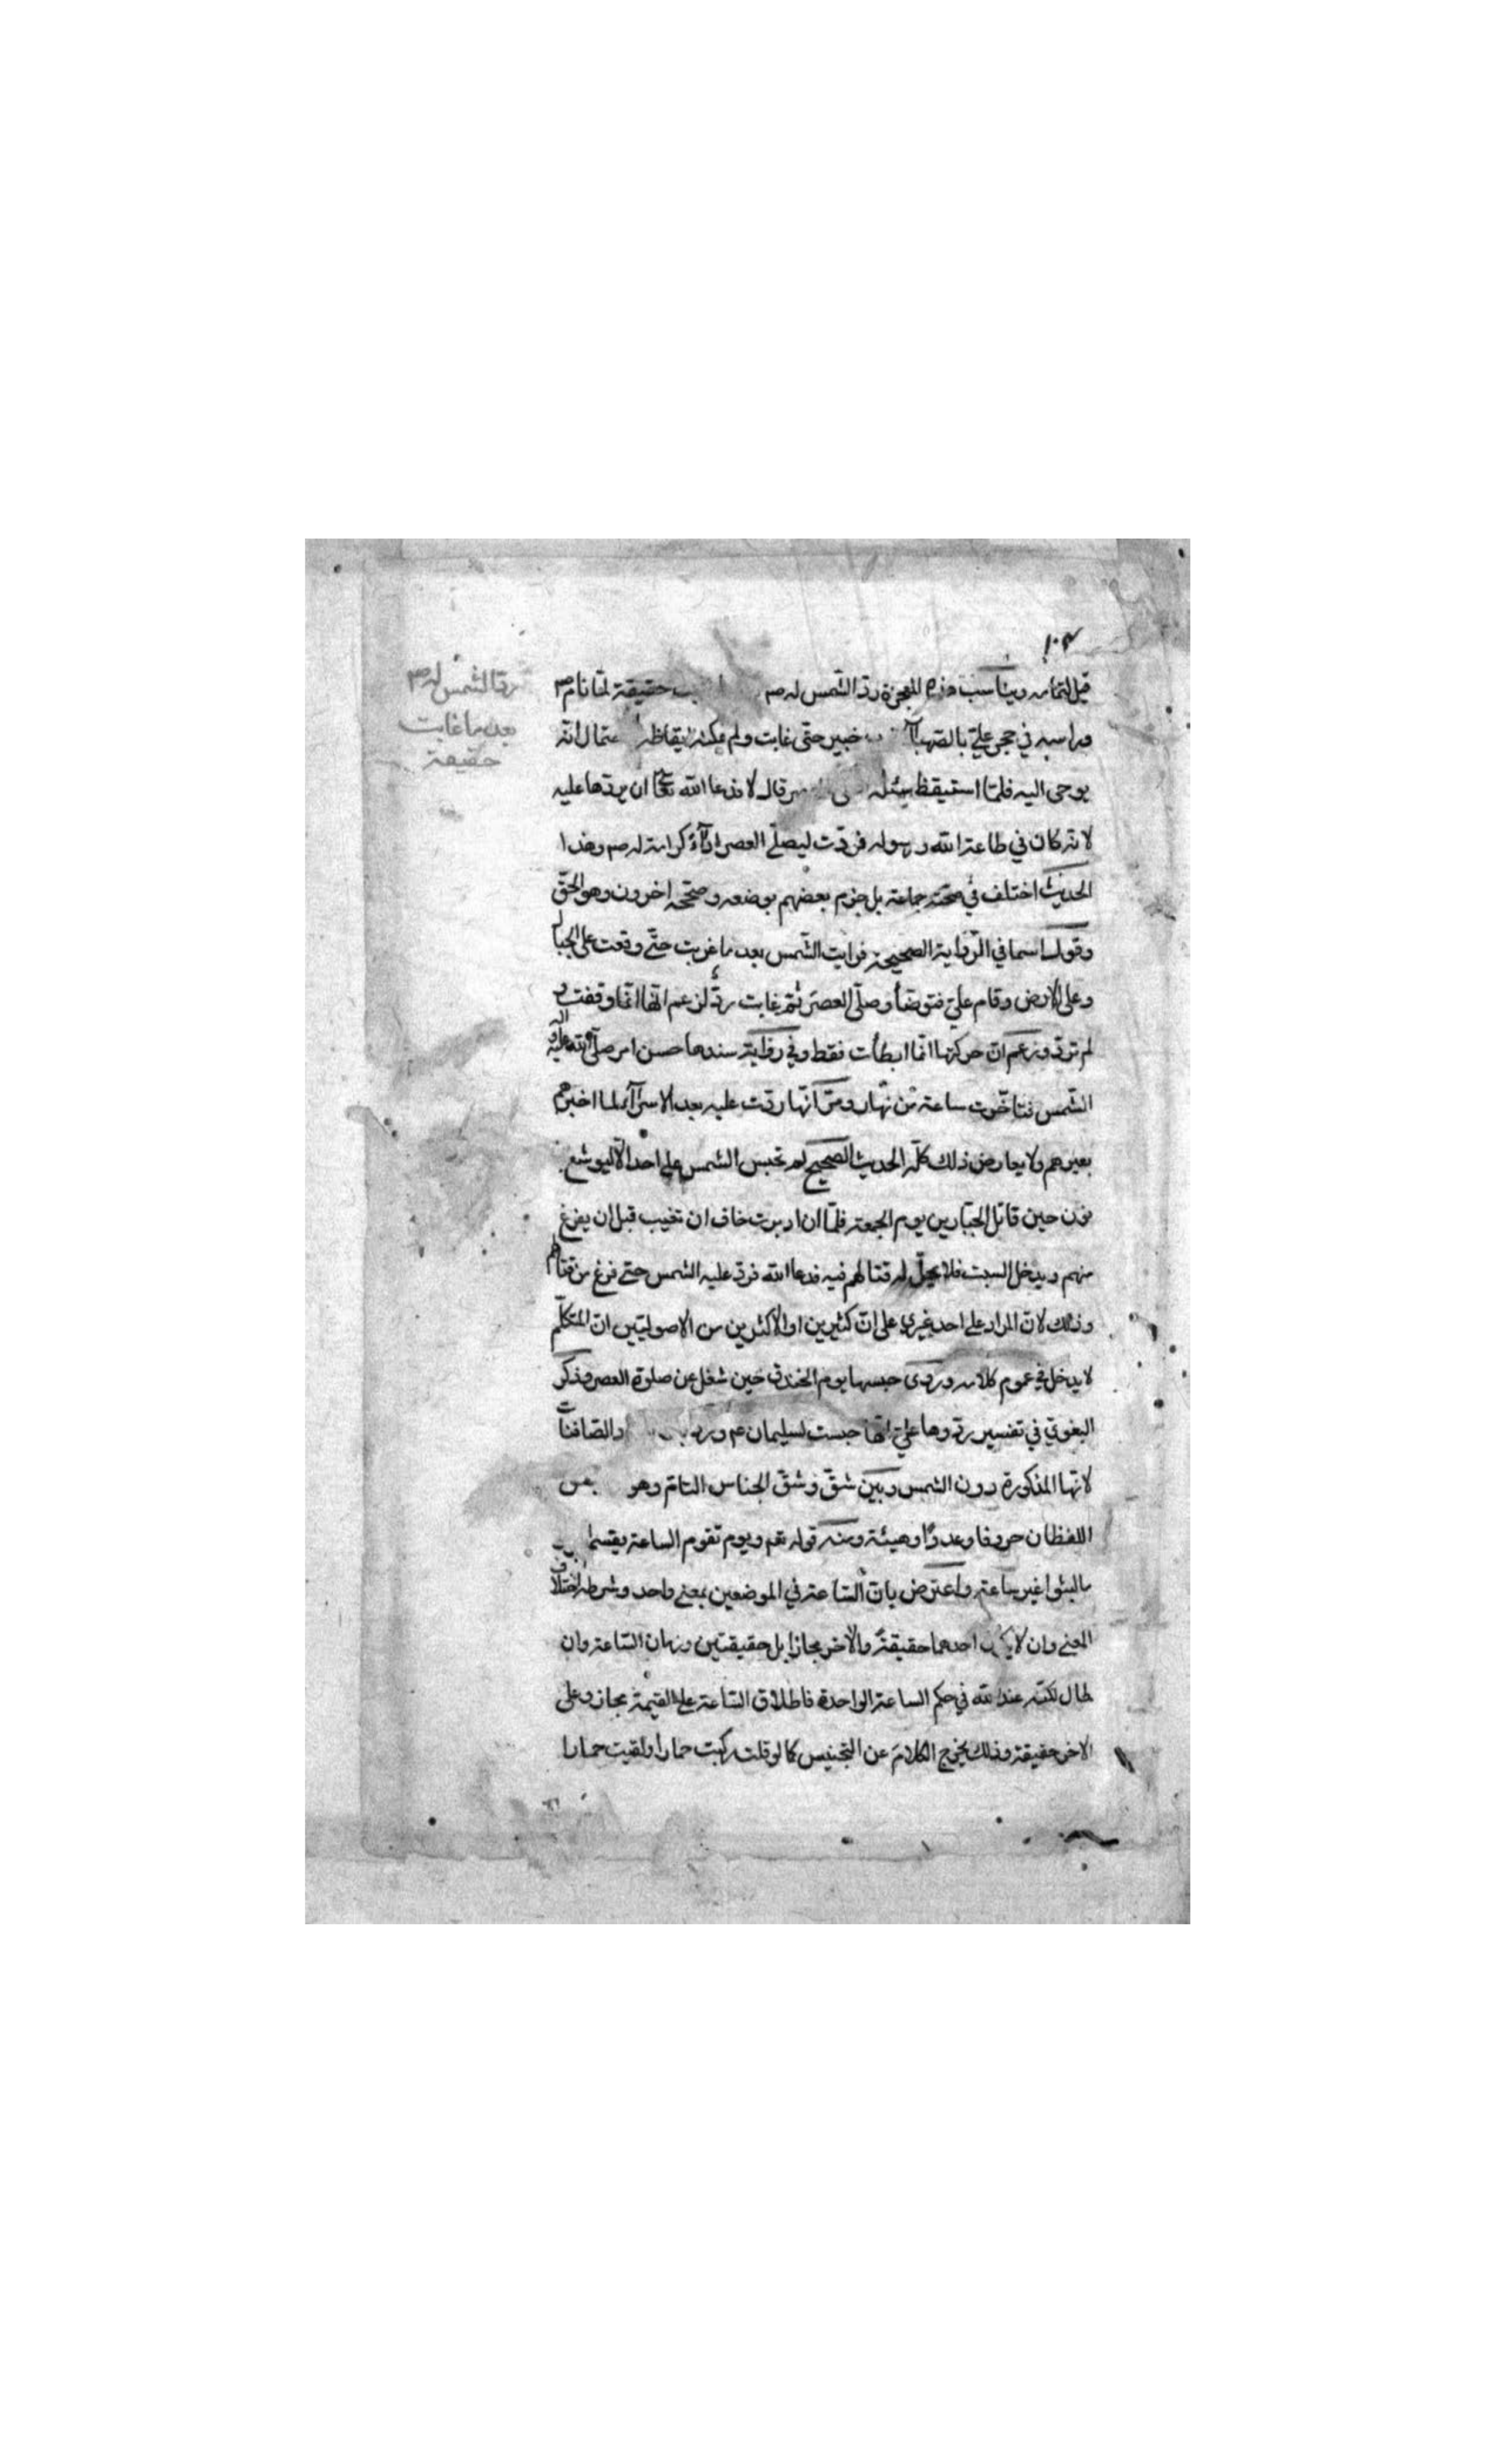 ١٠٣
قبل لتمامه ويناسب هذه المعجزة ردّ الشّمس له ص حقيقة لمّا نام ص
وراسه في حجر عليّ بالصّهبآ خيبر حتّى غابت ولم يمكنه ايقاظه انّه
يوحى اليه فلمّا استيقظ سئله قال لا فدعا الله تعا ان يردّها عليه
لانّه كان في طاعة الله ورسوله فردّت ليصلّي العصر ادآءً كرامة له صم وهذا
الحديث اختلف في صحّته جماعة بل جزم بعضهم بوضعه وصحّحه اخرون وهو الحقّ
وقول اسما في الرّواية الصحيحة فرايت الشّمس بعد ما غربت حتّى وقعت على الجبال
وعلى الارض وقام عليّ فتوضأ وصلّى العصرَ ثمّ غابت ردّ لزعم انّها انّما وقفت و
لم تردّ وزعم انّ حركتها انّما ابطأت فقط وفي رواية سندها حسن امر صلّى الله عليه وآله
الشّمس فتاخّرت ساعة من نهار ومرّ انّها ردّت عليه بعد الاسرآء لما اخبرهم
بعيرهم ولا يعارض ذلك كلّه الحديث الصحيح لم تحبس الشمس على احد الّا ليوشع
نون حين قاتل الجبّارين يوم الجمعة فلمّا ان ادبرت خاف ان تغيب قبل ان يفرغ
منهم ويدخل السبت فلا يحلّ له قتالهم فيه فدعا الله فردّ عليه الشمس حتّى فرغ من قتالهم
وذلك لانّ المراد على احد غيري على انّ كثيرين او الاكثرين من الاصوليّين انّ المتكلّم
لا يدخل في عموم كلامه وروى حبسها يوم الخندق حين شغل عن صلوة العصر وذكر
البغوي في تفسير ردّوها عليّ انّها حبست لسليمان عم وردّ والصّافنات
لانّها المذكورة دون الشمس وبين شقّ وشقّ الجناس التامّ وهو
اللفظان حروفا وعددًا وهيئة ومنه قوله تعم ويوم تقوم الساعة يقسم
ما لبثوا غير ساعة واعترض بانّ السّاعة في الموضعين بمعنى واحد وشرطه اختلاف
المعنى وان لا يكون احدهما حقيقةً والاخر مجازا بل حقيقتين وزمان السّاعة وان
طال لكنّه عند الله في حكم الساعة الواحدة فاطلاق السّاعة على القيمة مجاز وعلى
الاخر حقيقة وذلك يخرج الكلامَ عن التجنيس كما لو قلت ركبت حمارا ولقيت حمارا
ردّ الشّمس له ص
بعد ما غابت
حقيقة